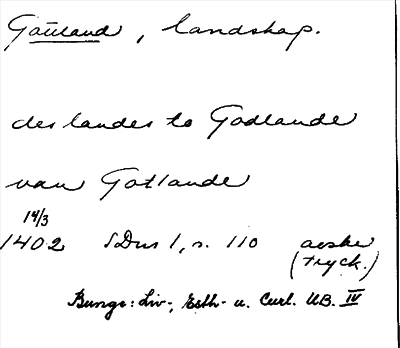 Gotland, landskap.
des landes to Godlande
van Gotlande
14/3
1402 SDns 1, s. 110 avskr
(tryck.)
Bunge: Liv-, Esth- u. Curl. UB. IV